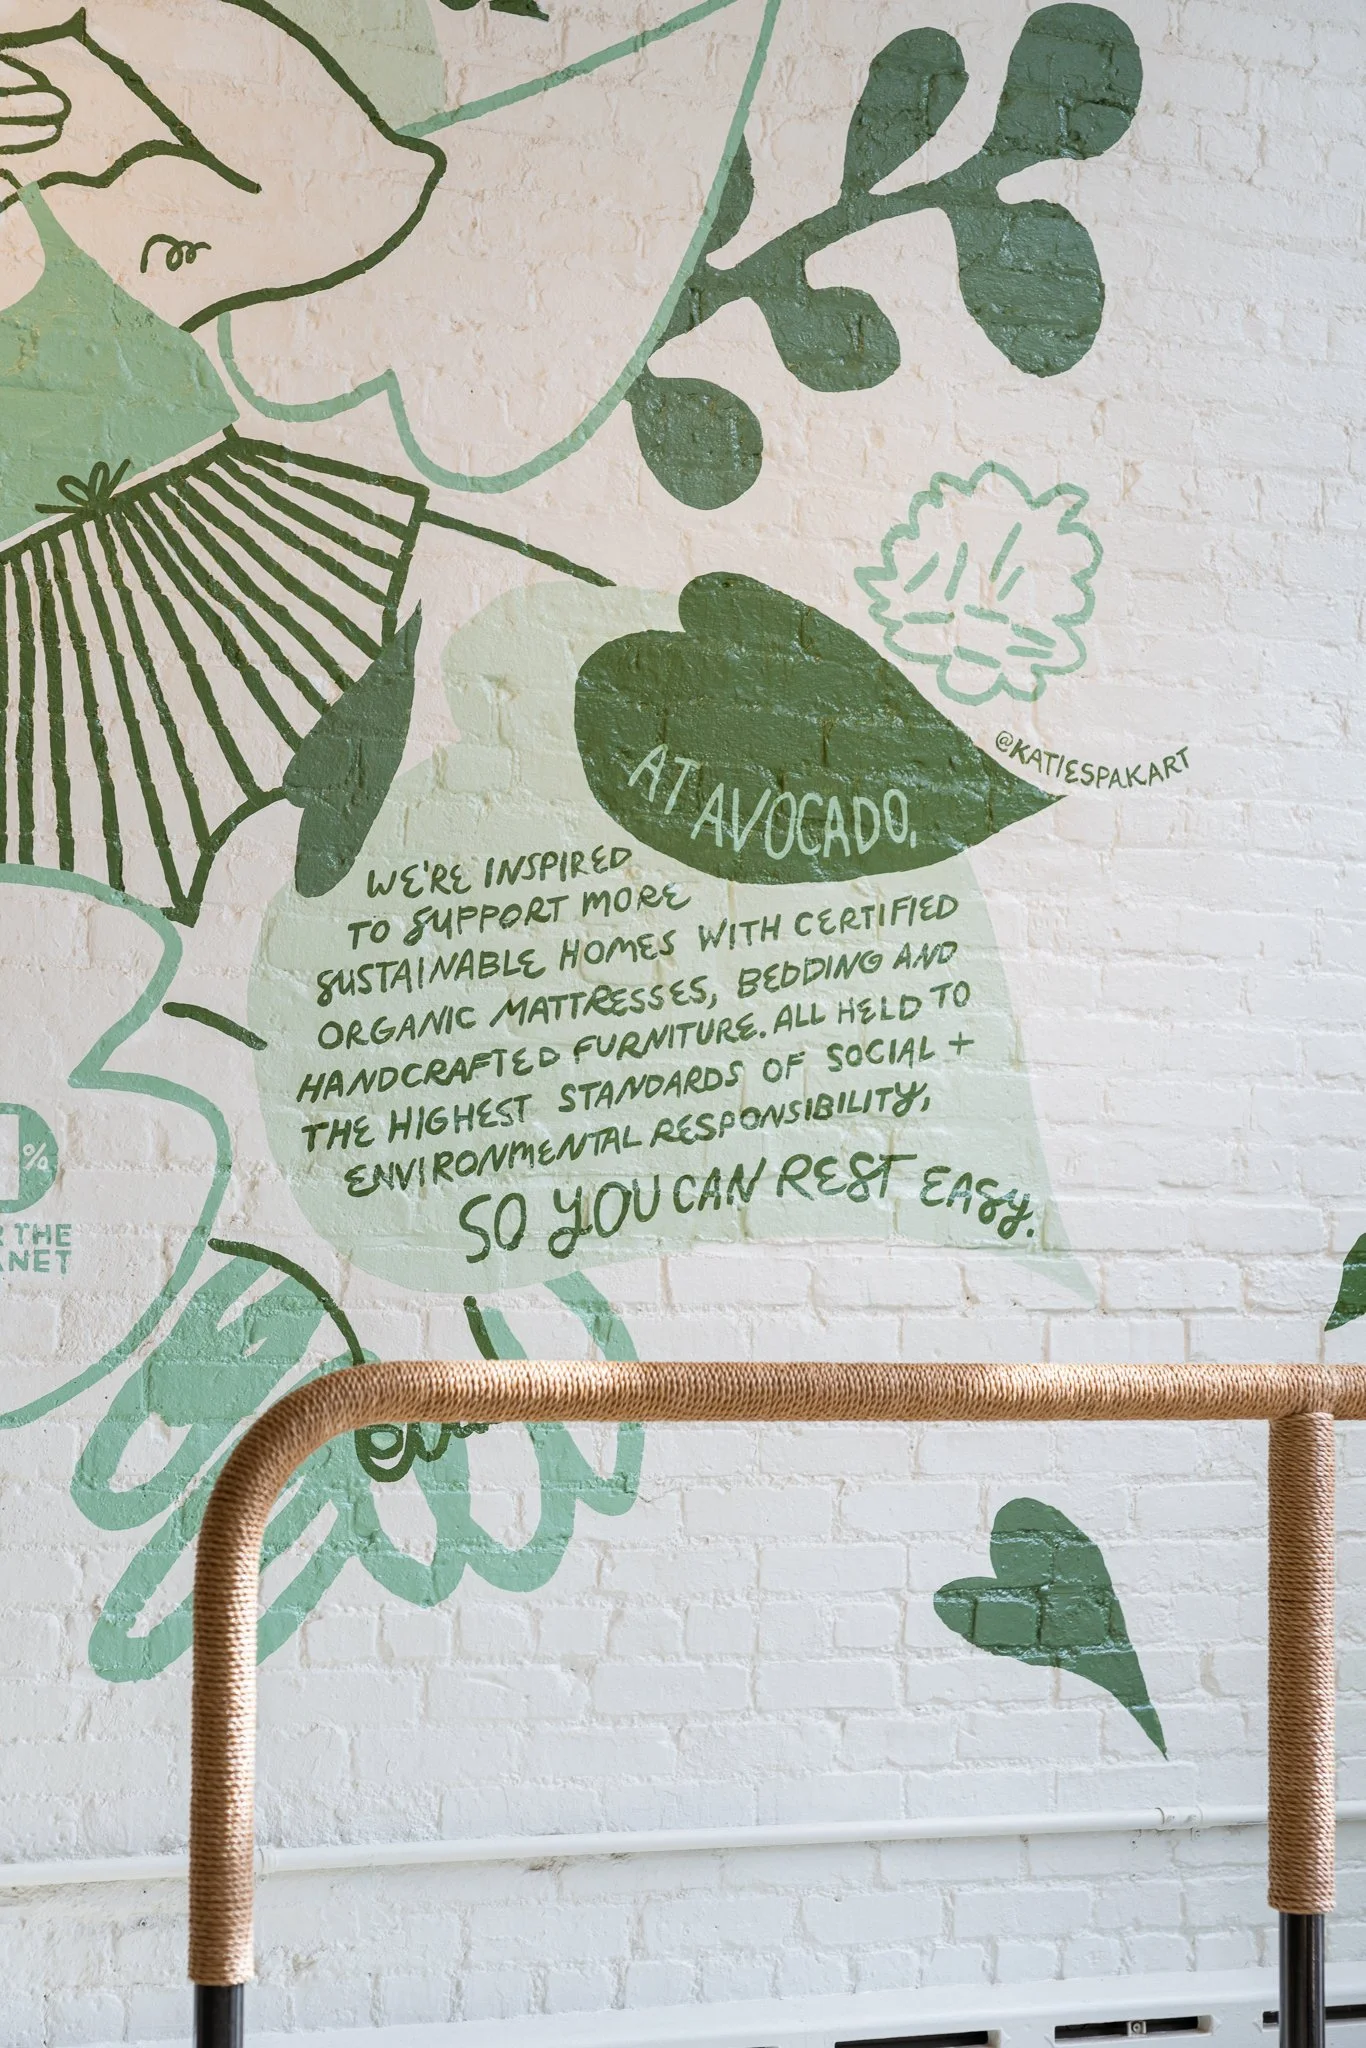 @KATIESPAKART
AT AVOCADO,
WE'RE INSPIRED
TO SUPPORT MORE
SUSTAINABLE HOMES WITH CERTIFIED
ORGANIC MATTRESSES, BEDDING AND
HANDCRAFTED FURNITURE. ALL HELD TO
THE HIGHEST STANDARDS OF SOCIAL +
ENVIRONMENTAL RESPONSIBILITY,
SO YOU CAN REST EASY.
%
THE